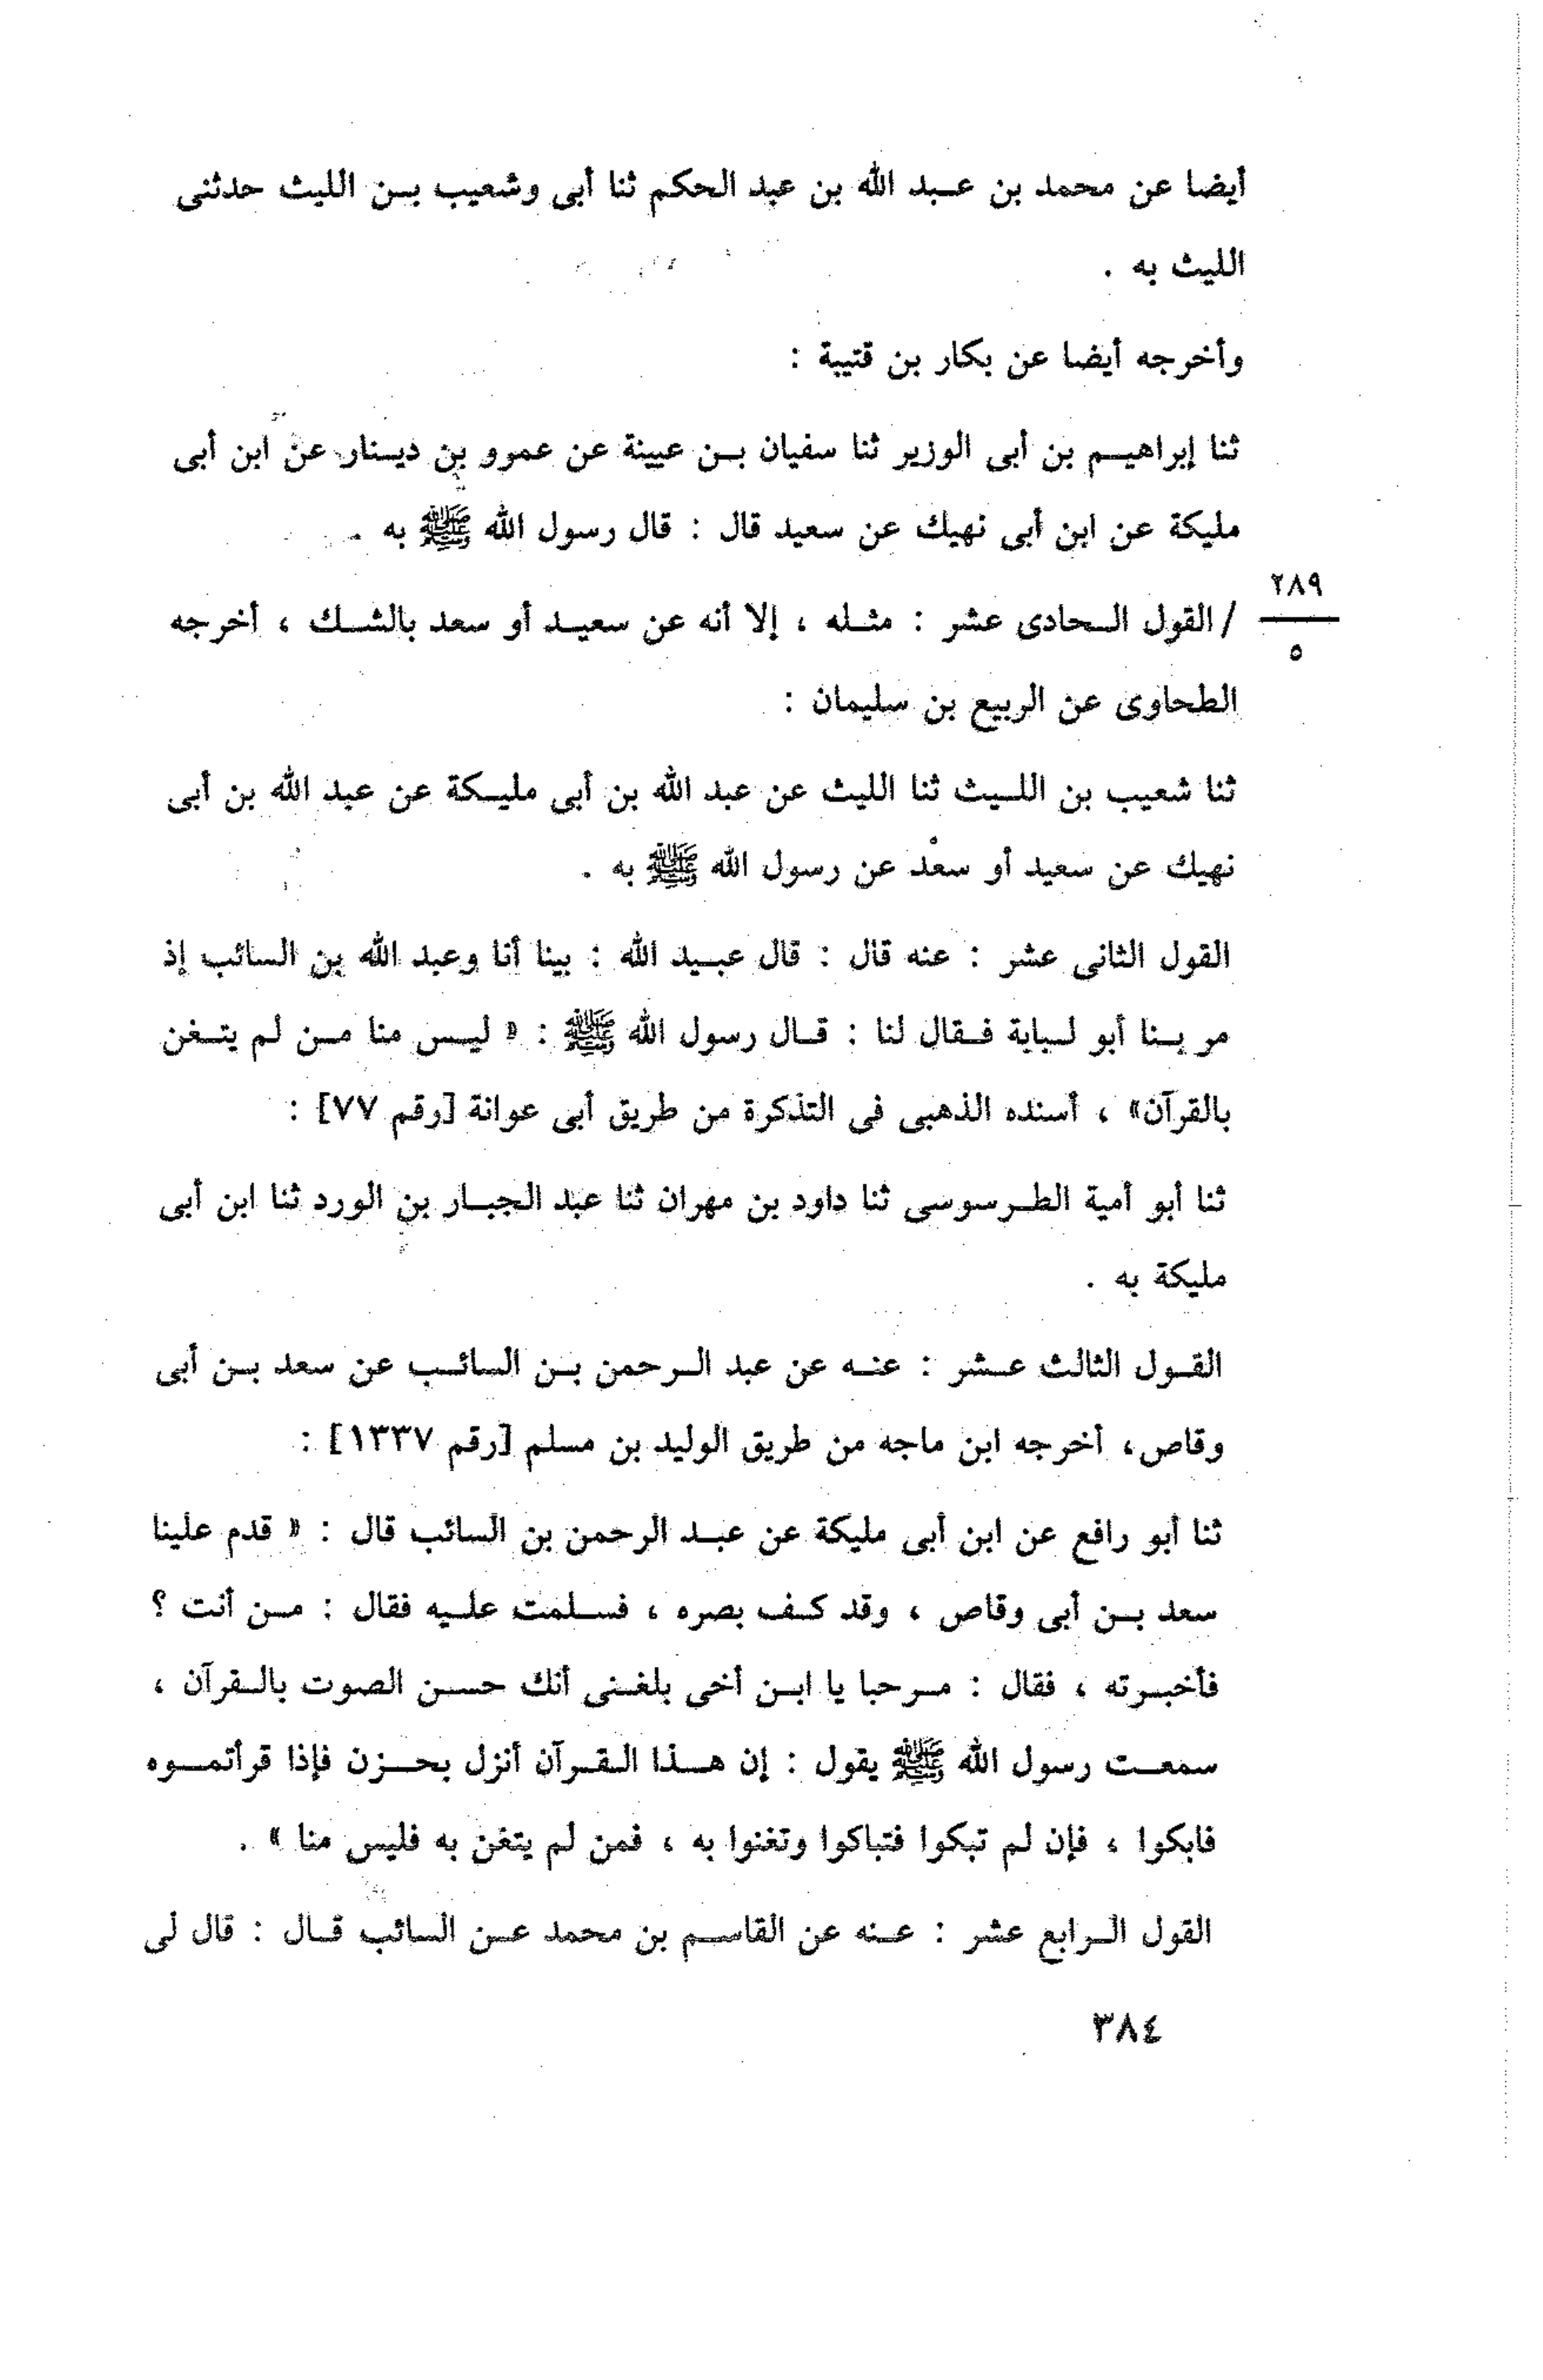 أيضا عن محمد بن عبد الله بن عبد الحكم ثنا أبى وشعيب بن الليث حدثنى
الليث به .
وأخرجه أيضا عن بكار بن قتيبة :
ثنا إبراهيم بن أبى الوزير ثنا سفيان بن عيينة عن عمرو بن دينار عن ابن أبى
مليكة عن ابن أبى نهيك عن سعيد قال : قال رسول الله ﷺ به .
٢٨٩
/ القول الحادى عشر : مثله ، إلا أنه عن سعيد أو سعد بالشك ، أخرجه
٥
الطحاوى عن الربيع بن سليمان :
ثنا شعيب بن الليث ثنا الليث عن عبد الله بن أبى مليكة عن عبد الله بن أبى
نهيك عن سعيد أو سعْد عن رسول الله ﷺ به .
القول الثانى عشر : عنه قال : قال عبيد الله : بينا أنا وعبد الله بن السائب إذ
مر بنا أبو لبابة فقال لنا : قال رسول الله ﷺ : « ليس منا من لم يتغن
بالقرآن» ، أسنده الذهبى فى التذكرة من طريق أبى عوانة [رقم ٧٧] :
ثنا أبو أمية الطرسوسى ثنا داود بن مهران ثنا عبد الجبار بن الورد ثنا ابن أبى
مليكة به .
القول الثالث عشر : عنه عن عبد الرحمن بن السائب عن سعد بن أبى
وقاص، أخرجه ابن ماجه من طريق الوليد بن مسلم [رقم ١٣٣٧] :
ثنا أبو رافع عن ابن أبى مليكة عن عبد الرحمن بن السائب قال : « قدم علينا
سعد بن أبى وقاص ، وقد كف بصره ، فسلمت عليه فقال : من أنت ؟
فأخبرته ، فقال : مرحبا يا ابن أخى بلغنى أنك حسن الصوت بالقرآن ،
سمعت رسول الله ﷺ يقول : إن هذا القرآن أنزل بحزن فإذا قرأتموه
فابكوا ، فإن لم تبكوا فتباكوا وتغنوا به ، فمن لم يتغن به فليس منا » .
القول الرابع عشر : عنه عن القاسم بن محمد عن السائب قال : قال لى
٣٨٤